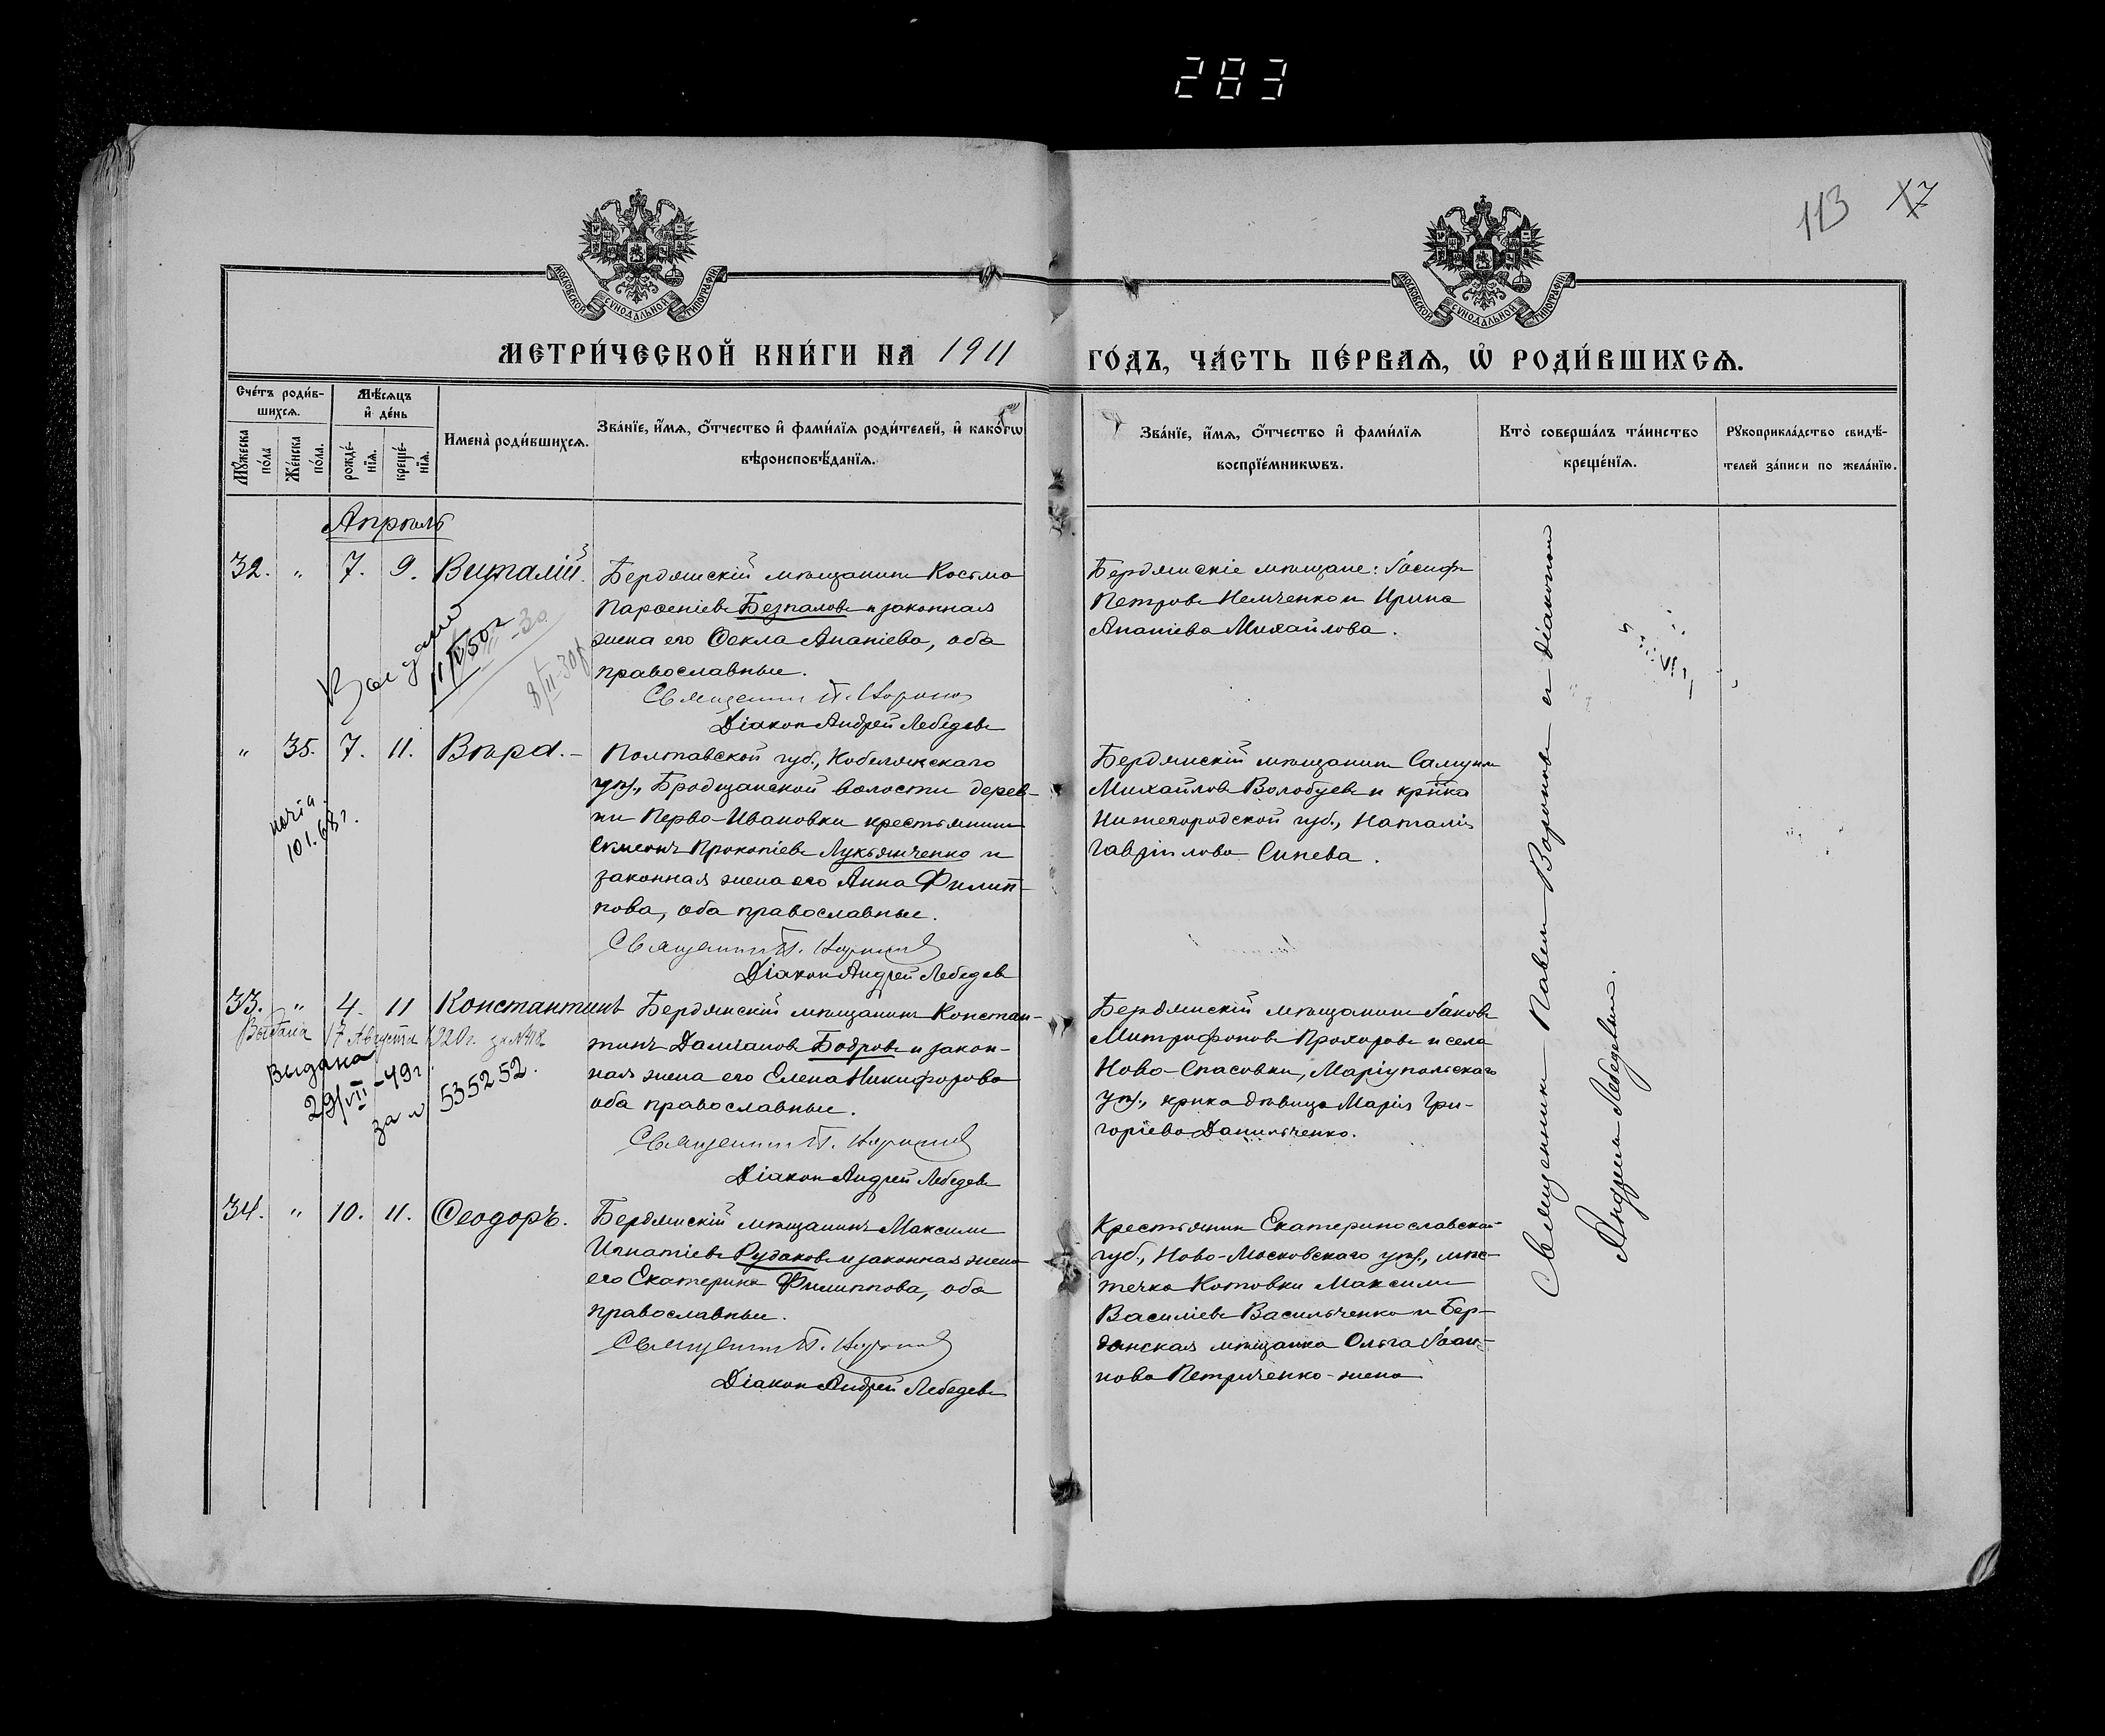 283
113 17
МОСКОВСКОЙ СѴНОДАЛЬНОЙ ТИПОГРАФІИ
МОСКОВСКОЙ СѴНОДАЛЬНОЙ ТИПОГРАФІИ
МЕТРИ́ЧЕСКОЙ КНИ́ГИ НА 1911
ГО́ДЪ, ЧА́СТЬ ПЕ́РВАѦ, Ѡ҆ РОДИ́ВШИХСѦ.
Сче́тъ роди́в-
шихсѧ.
Мѣ́сѧцъ
и҆ де́нь
Мꙋ́жеска
по́ла
Же́нска
по́ла.
рожде́-
нїѧ.
креще́-
нїѧ.
Имена̀ роди́вшихсѧ.
Зва́нїе, и҆́мѧ, ѻ҆́тчество и҆ фами́лїѧ роди́телей, и҆ како́гѡ
вѣроисповѣ́данїѧ.
Зва́нїе, и҆́мѧ, ѻ҆́тчество и҆ фами́лїѧ
воспрїе́мникѡвъ.
Кто̀ соверша́лъ та́инство
креще́нїѧ.
Рꙋкоприкла́дство свидѣ́-
телей за́писи по жела́нїю.
Апрѣль
32. " 7. 9. Виталій.
Бердянскій мѣщанинъ Косма
Парѳеніевъ Безпаловъ и законная
жена его Ѳекла Ананіева, оба
православные.
Священникъ П. Вороновъ
Діаконъ Андрей Лебедевъ
Бердянскіе мѣщане: Іосифъ
Петровъ Немченко и Ирина
Ананіева Михайлова.
11/IV 50 г
8/II-30 г
" 35. 7. 11. Вѣра.-
Полтавской губ., Кобелякскаго
уѣз., Бродщанской волости дерев-
ни Перво-Ивановки крестьянинъ
Симеонъ Прокопіевъ Лукьянченко и
законная жена его Анна Филип-
пова, оба православные.
Священникъ П. Вороновъ
Діаконъ Андрей Лебедевъ
Бердянскій мѣщанинъ Самуилъ
Михайловъ Волобуевъ и кр̃нка
Нижегородской губ., Наталія
Гавріилова Синева.
101.68 г.
33. " 4. 11 Константинъ
Выдана 17 Августа 1920 г. за № 418
Выдана
29/VII-49 г.
за № 535252.
Бердянскій мѣщанинъ Констан-
тинъ Даміановъ Бодровъ и закон-
ная жена его Елена Никифорова
оба православные.
Священникъ П. Вороновъ
Діаконъ Андрей Лебедевъ
Бердянскій мѣщанинъ Іаковъ
Митрофановъ Прохоровъ и села
Ново-Спасовки, Маріупольскаго
уѣз., кр̃нка дѣвица Марія Гри-
горіева Данильченко.
34. " 10. 11. Ѳеодоръ.
Бердянскій мѣщанинъ Максимъ
Игнатіевъ Рудаковъ и законная жена
его Екатерина Филиппова, оба
православные.
Священникъ П. Вороновъ
Діаконъ Андрей Лебедевъ
Крестьянинъ Екатеринославской
губ., Ново-Московскаго уѣз., мѣс-
течка Котовки Максимъ
Василіевъ Васильченко и Бер-
дянская мѣщанка Ольга Іоан-
нова Петриченко-жена
Священникъ Павелъ Вороновъ съ діакономъ
Андреемъ Лебедевымъ.